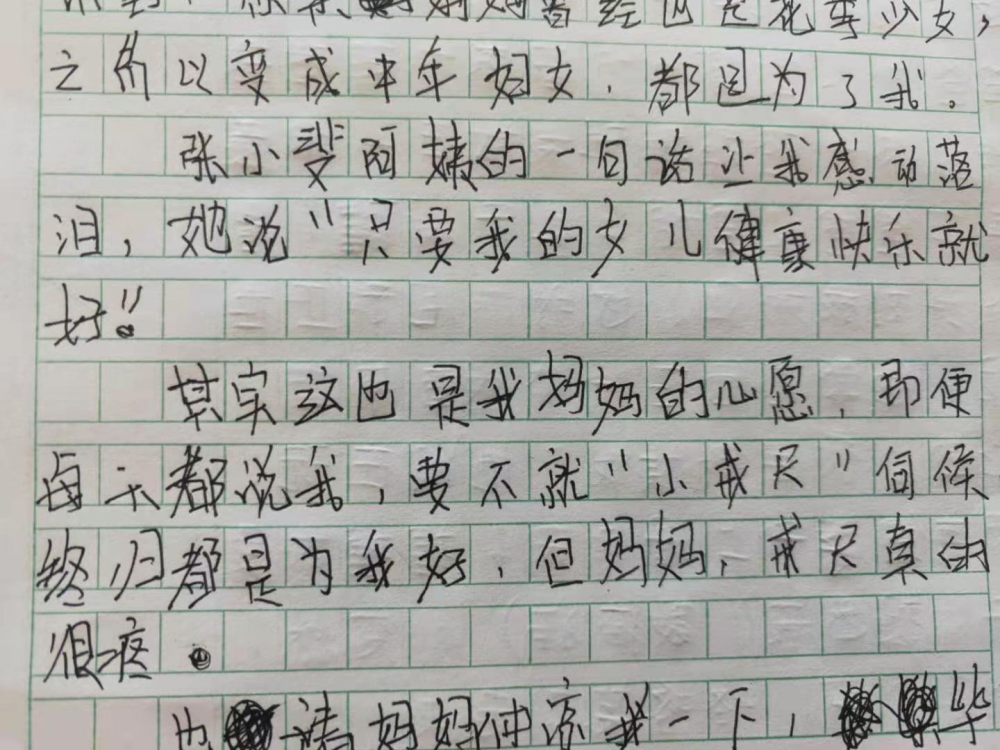 妈妈曾经也是花季少女，
之所以变成中年妇女，都因为了我。
张小斐阿姨的一句话让我感动落
泪，她说“只要我的女儿健康快乐就
好”。
其实这也是我妈妈的心愿，即便
每天都说我，要不就“小戒尺”伺候
终归都是为我好，但妈妈，戒尺真的
很疼。
也请妈妈体谅我一下，毕